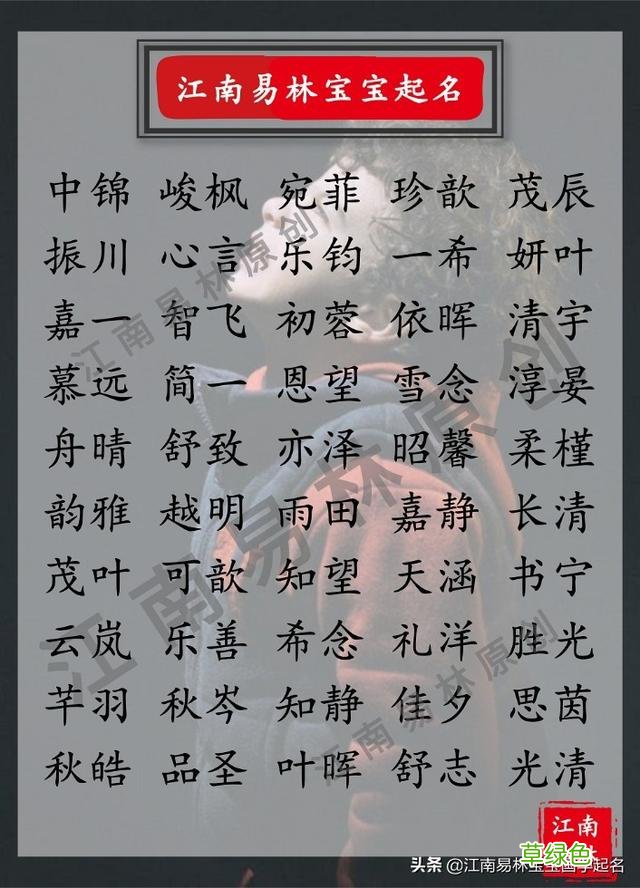 江南易林宝宝起名
中锦 峻枫 宛菲 珍歆 茂辰
振川 心言 乐钧 一希 妍叶
嘉一 智飞 初蓉 依晖 清宇
慕远 简一 恩望 雪念 淳晏
舟晴 舒致 亦泽 昭馨 柔槿
韵雅 越明 雨田 嘉静 长清
茂叶 可歆 知望 天涵 书宁
云岚 乐善 希念 礼洋 胜光
芊羽 秋岑 知静 佳夕 思茵
秋皓 品圣 叶晖 舒志 光清
江南易林原创
江南易林原创
江南易林原创
江南
草绿色
头条 @江南易林宝宝国学起名